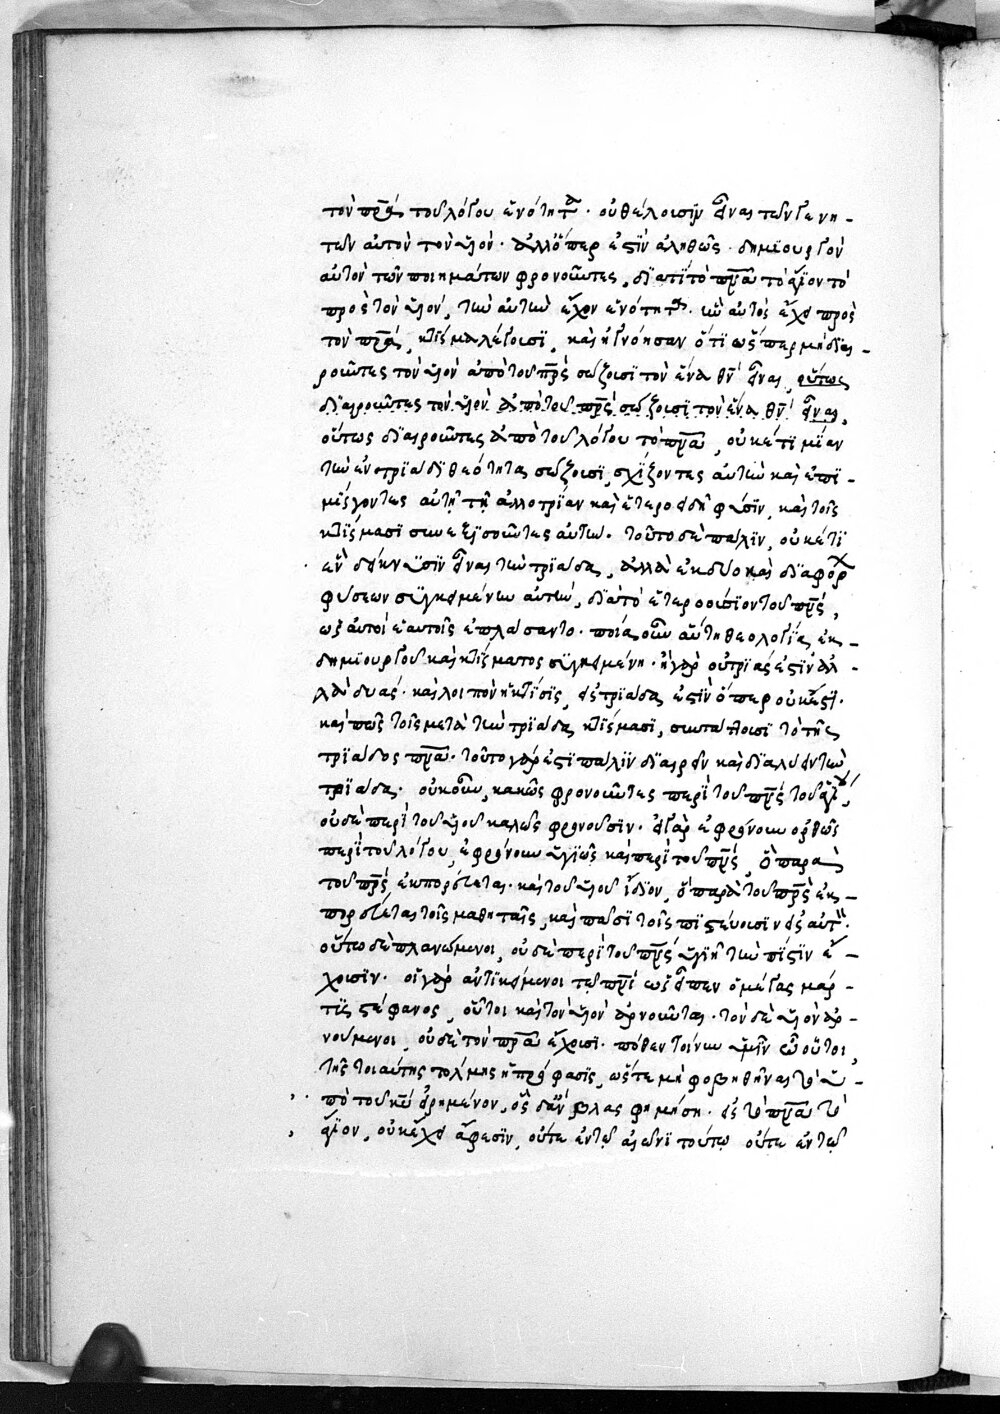 τὸν πρ̅α τοῦ λόγου ἑνότητα. οὐ θέλουσιν εἶναι τῶν γενη-
τῶν αὐτὸν τὸν υἱὸν. ἀλλ' ὅπερ ἐστὶν ἀληθῶς. δημιουργὸν
αὐτὸν τῶν ποιημάτων φρονοῦντες, διατί τὸ πν̅α τὸ ἅγιον τὸ
πρὸς τὸν υἱὸν, τὴν αὐτὴν ἔχον ἑνότητα. ἣν αὐτὸς ἔχει πρὸς
τὸν πρ̅α, κτίσμα λέγουσι, καὶ ἠγνόησαν ὅτι ὥσπερ μὴ διαι-
ροῦντες τὸν υἱὸν ἀπὸ τοῦ πρ̅ς σώζουσι τὸν ἕνα θν̅ εἶναι, οὕτως
διαιροῦντες τὸν υἱὸν ἀπὸ τοῦ πρ̅ς σώζουσι τὸν ἕνα θν̅ εἶναι,
οὕτως διαιροῦντες ἀπὸ τοῦ λόγου τὸ πν̅α, οὐκέτι μίαν
τὴν ἐν τριάδι θεότητα σώζουσι, σχίζοντες αὐτὴν καὶ ἐπι-
μίσγοντες αὐτῇ τὴν ἀλλοτρίαν καὶ ἑτεροειδῆ φύσιν, καὶ τοῖς
κτίσμασι συνεξισοῦντες αὐτήν. τοῦτο δὲ πάλιν, οὐκέτι
ἓν δείκνυσιν εἶναι τὴν τριάδα, ἀλλὰ ἐκ δύο καὶ διαφόρ
φύσεων συγκειμένην αὐτὴν, διὰ τὸ ἑτεροούσιον τοῦ πν̅ς,
ὡς αὐτοὶ ἑαυτοῖς ἐπλάσαντο. ποία οὖν αὕτη θεολογία, ἐκ
δημιουργοῦ καὶ κτίσματος συγκειμένη. ἢ γὰρ οὐ τριάς ἐστιν ἀλ-
λὰ δυάς. καὶ λοιπὸν ἡ κτίσις, εἰ τριάδα ἐστὶν ὅπερ οὐκ ἔστι.
καὶ πῶς τοῖς μετὰ τὴν τριάδα κτίσμασι, συντάττουσι τὸ τῆς
τριάδος πν̅α. τοῦτο γάρ ἐστι πάλιν διαιρεῖν καὶ διαλύειν τὴν
τριάδα. οὐκοῦν, κακῶς φρονοῦντες περὶ τοῦ πν̅ς τοῦ ἁγί,
οὐδὲ περὶ τοῦ υἱοῦ καλῶς φρονοῦσιν. εἰ γὰρ ἐφρόνουν ὀρθῶς
περὶ τοῦ λόγου, ἐφρόνουν ὑγιῶς καὶ περὶ τοῦ πν̅ς, ὃ παρὰ
τοῦ πρ̅ς ἐκπορεύεται. καὶ τοῦ υἱοῦ ἴδιον, ὃ παρὰ τοῦ πρ̅ς ἐκ-
πορεύεται τοῖς μαθηταῖς, καὶ πᾶσι τοῖς πιστεύουσιν εἰς αὐτ.
οὕτω δὲ πλανώμενοι, οὐδὲ περὶ τοῦ πρ̅ς ὑγιῆ τὴν πίστιν ἔ-
χουσιν. οἱ γὰρ ἀντικείμενοι τῷ πν̅ι ὡς εἶπεν ὁ μέγας μάρ-
τυς στέφανος, οὗτοι καὶ τὸν υἱὸν ἀρνοῦνται. τὸν δὲ υἱὸν ἀρ-
νούμενοι, οὐδὲ τὸν πρ̅α ἔχουσι. πόθεν τοίνυν ὑμῖν ὦ οὗτοι,
τῆς τοιαύτης τόλμης ἡ πρόφασις, ὥστε μὴ φοβηθῆναι τὸ ὑ-
πὸ τοῦ κυ̅ εἰρημένον, ὃς δ' ἂν βλασφημήσῃ. εἰς τὸ πν̅α τὸ
ἅγιον, οὐκ ἔχει ἄφεσιν, οὔτε ἐν τῷ αἰῶνι τούτῳ οὔτε ἐν τῷ